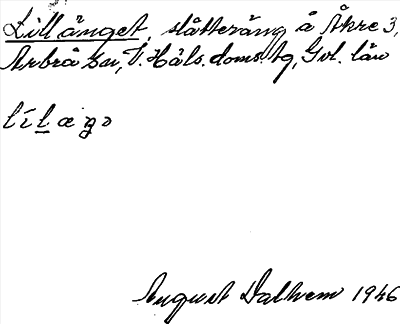 Lillänget, slåtteräng å Åkre 3,
Arbrå sn, V. Häls. doms. tg, Gvl. län
lílæŋə
August Dalhem 1946